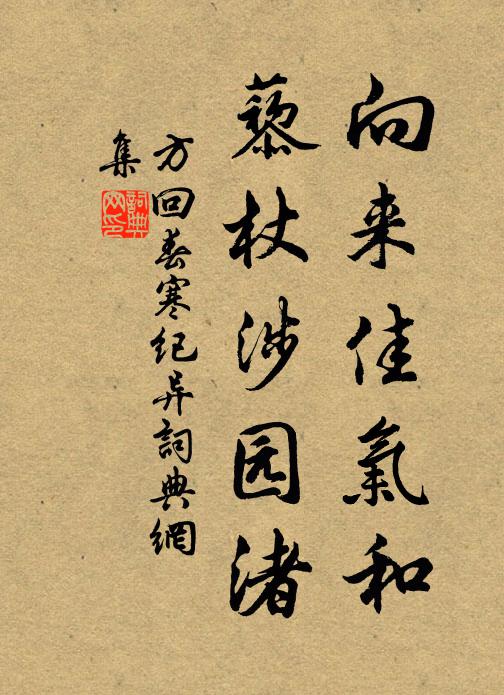 向来佳氣和
藜杖涉园渚
方回春寒纪异詞典網
集
詞典
网印